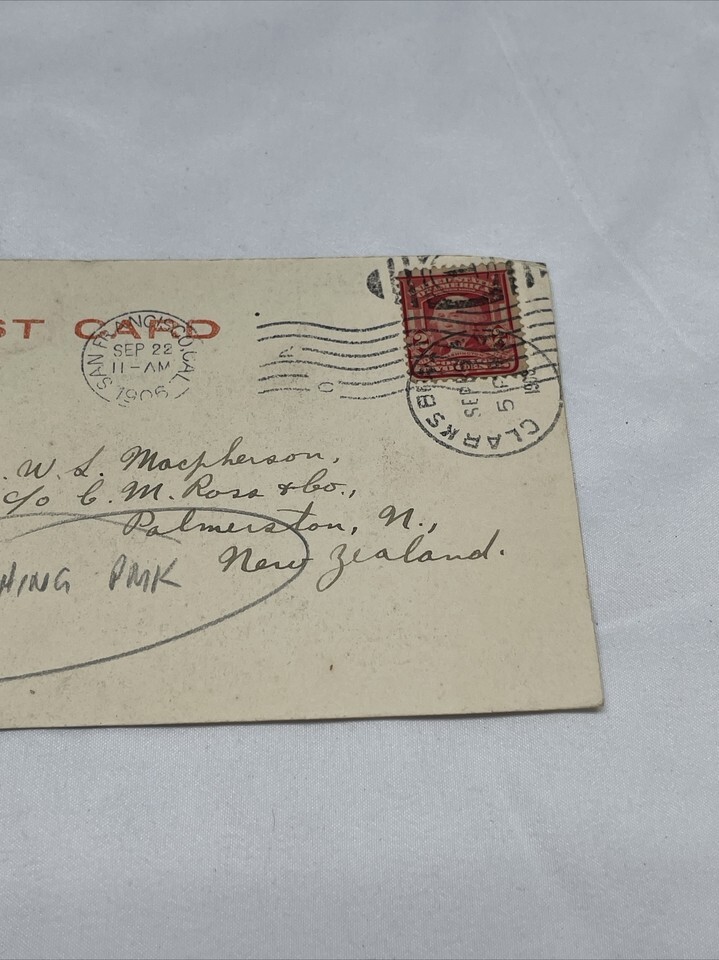 ST CARD
SAN FRANCISCO, CAL.
SEP 22
11-AM
1906
CLARKSB
SEP
5 P
W. S. Macpherson,
c/o C. M. Ross & Co.,
Palmerston, N.,
New Zealand.
HING PMK